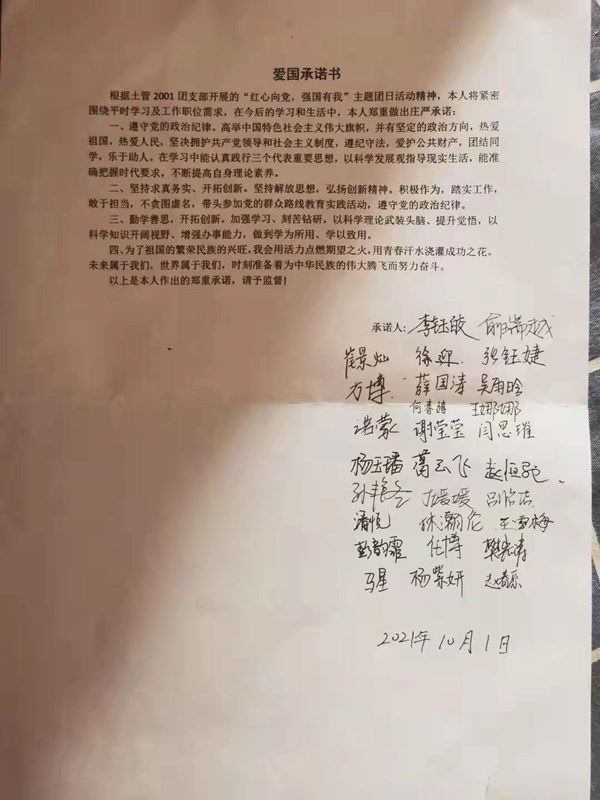 爱国承诺书
根据土管2001团支部开展的“红心向党，强国有我”主题团日活动精神，本人将紧密
围绕平时学习及工作职位需求，在今后的学习和生活中，本人郑重做出庄严承诺：
一、遵守党的政治纪律。高举中国特色社会主义伟大旗帜，并有坚定的政治方向，热爱
祖国，热爱人民，坚决拥护共产党领导和社会主义制度，遵纪守法，爱护公共财产，团结同
学，乐于助人。在学习中能认真践行三个代表重要思想，以科学发展观指导现实生活，能准
确把握时代要求，不断提高自身理论素养。
二、坚持求真务实、开拓创新。坚持解放思想，弘扬创新精神。积极作为，踏实工作，
敢于担当，不贪图虚名，带头参加党的群众路线教育实践活动，遵守党的政治纪律。
三、勤学善思，开拓创新。加强学习、刻苦钻研，以科学理论武装头脑、提升觉悟，以
科学知识开阔视野、增强办事能力，做到学为所用、学以致用。
四、为了祖国的繁荣民族的兴旺，我会用活力点燃期望之火，用青春汗水浇灌成功之花。
未来属于我们，世界属于我们，时刻准备着为中华民族的伟大腾飞而努力奋斗。
以上是本人作出的郑重承诺，请予监督！
承诺人：李钰皎
崔景灿 徐迎 张钰婕
万博 薛国涛 吴雨晗
何春 王娜娜
洪蒙 谢莹莹 闫思璀
杨玉璠 葛云飞
孙艳冬 尤媛媛
潘悦 林瀚伦 王雪梅
彭韵霏 任博
马星 杨紫妍
2021年10月1日